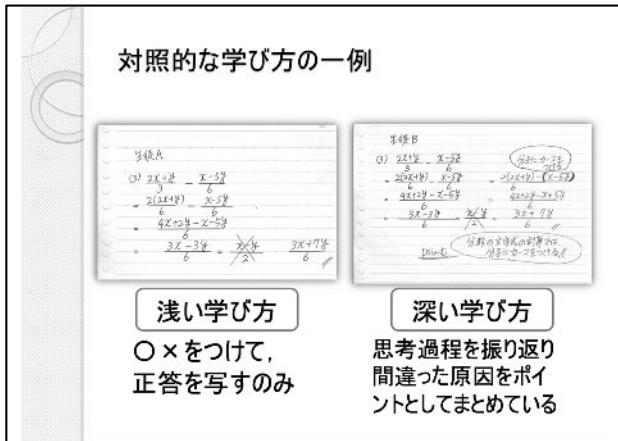 対照的な学び方の一例
生徒A
(3) 2x+y/3 - x-5y/6
= 2(2x+y)/6 - x-5y/6
= 4x+2y-x-5y/6
= 3x-3y/6 = x-y/2 3x+7y/6
生徒B
(3) 2x+y/3 - x-5y/6
= 2(2x+y)/6 - x-5y/6 = 2(2x+y)-(x-5y)/6
= 4x+2y-x-5y/6 = 4x+2y-x+5y/6
= 3x-3y/6 = x-y/2 = 3x+7y/6
分数の文字式の計算では、
分子にカッコをつける!!
浅い学び方
○×をつけて,
正答を写すのみ
深い学び方
思考過程を振り返り
間違った原因をポイ
ントとしてまとめている